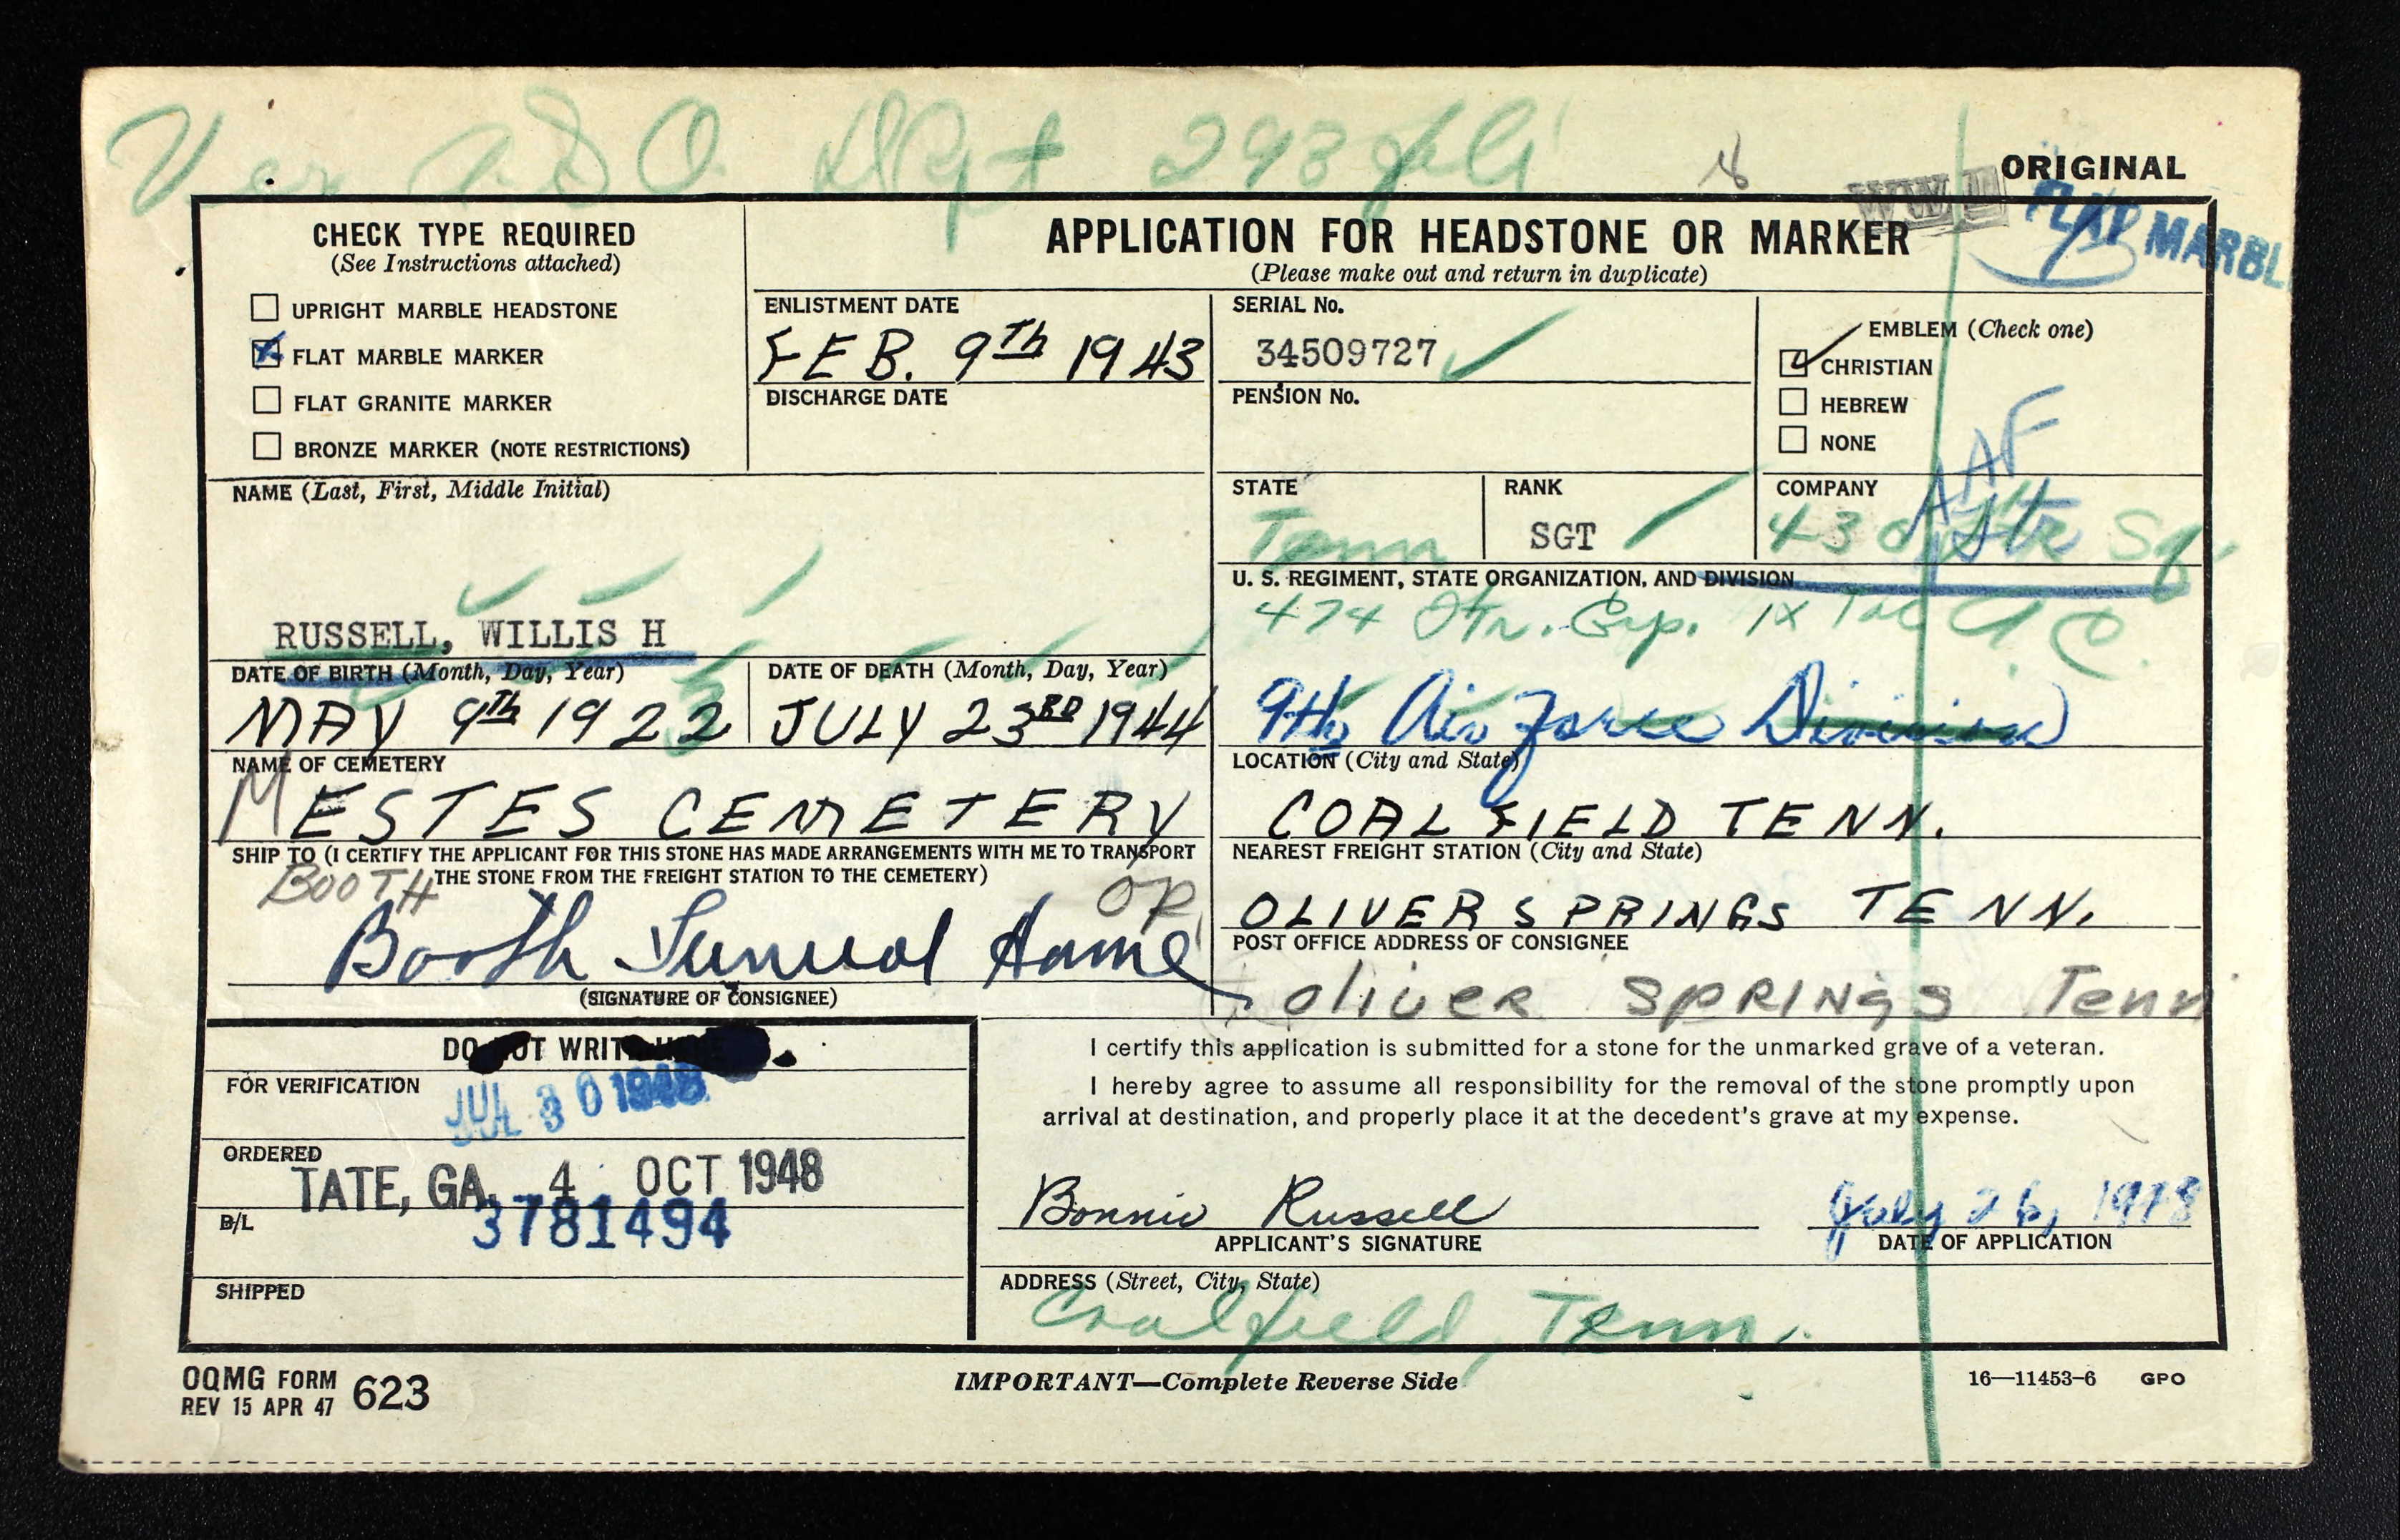 ORIGINAL
WW II
FLAT MARBL
CHECK TYPE REQUIRED
(See Instructions attached)
UPRIGHT MARBLE HEADSTONE
FLAT MARBLE MARKER
FLAT GRANITE MARKER
BRONZE MARKER (NOTE RESTRICTIONS)
APPLICATION FOR HEADSTONE OR MARKER
(Please make out and return in duplicate)
ENLISTMENT DATE
FEB. 9Th 1943
DISCHARGE DATE
SERIAL No.
34509727
PENSION No.
EMBLEM (Check one)
CHRISTIAN
HEBREW
NONE
NAME (Last, First, Middle Initial)
RUSSELL, WILLIS H
STATE
Tenn
RANK
SGT
COMPANY
AAF
43 Sq.
U. S. REGIMENT, STATE ORGANIZATION, AND DIVISION
474 Grp. IX Tac A. C.
9th Air Force Division
DATE OF BIRTH (Month, Day, Year)
MAY 9Th 1922
DATE OF DEATH (Month, Day, Year)
JULY 23RD 1944
NAME OF CEMETERY
M ESTES CEMETERY
LOCATION (City and State)
COALFIELD TENN.
SHIP TO (I CERTIFY THE APPLICANT FOR THIS STONE HAS MADE ARRANGEMENTS WITH ME TO TRANSPORT
THE STONE FROM THE FREIGHT STATION TO THE CEMETERY)
BOOTH
Booth Funeral Home
(SIGNATURE OF CONSIGNEE)
NEAREST FREIGHT STATION (City and State)
OLIVER SPRINGS TENN.
POST OFFICE ADDRESS OF CONSIGNEE
OliVER SPRINGS Tenn
DO NOT WRITE
FOR VERIFICATION
JUL 30 1948
ORDERED
TATE, GA. 4 OCT 1948
B/L
3781494
SHIPPED
I certify this application is submitted for a stone for the unmarked grave of a veteran.
I hereby agree to assume all responsibility for the removal of the stone promptly upon
arrival at destination, and properly place it at the decedent's grave at my expense.
Bonnie Russell
APPLICANT'S SIGNATURE
July 26, 1948
DATE OF APPLICATION
ADDRESS (Street, City, State)
Coalfield, Tenn.
OQMG FORM 623
REV 15 APR 47
IMPORTANT—Complete Reverse Side
16—11453-6 GPO